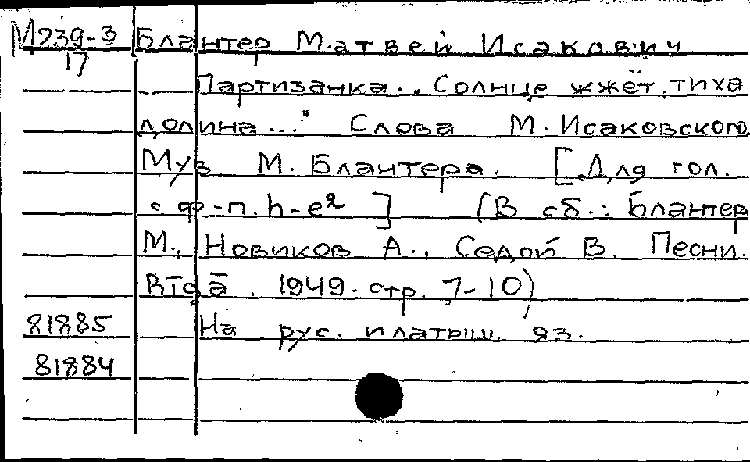 М239-3 Блантер Матвей Исакович
17
Партизанка. „Солнце жжёт, тиха
долина..." Слова М. Исаковского
Муз. М. Блантера. [Для гол.
с ф-п. h-e²] (В сб.: Блантер
М., Новиков А., Седой В. Песни.
1949. стр. 7-10)
81885 На рус. и латыш. яз.
81884